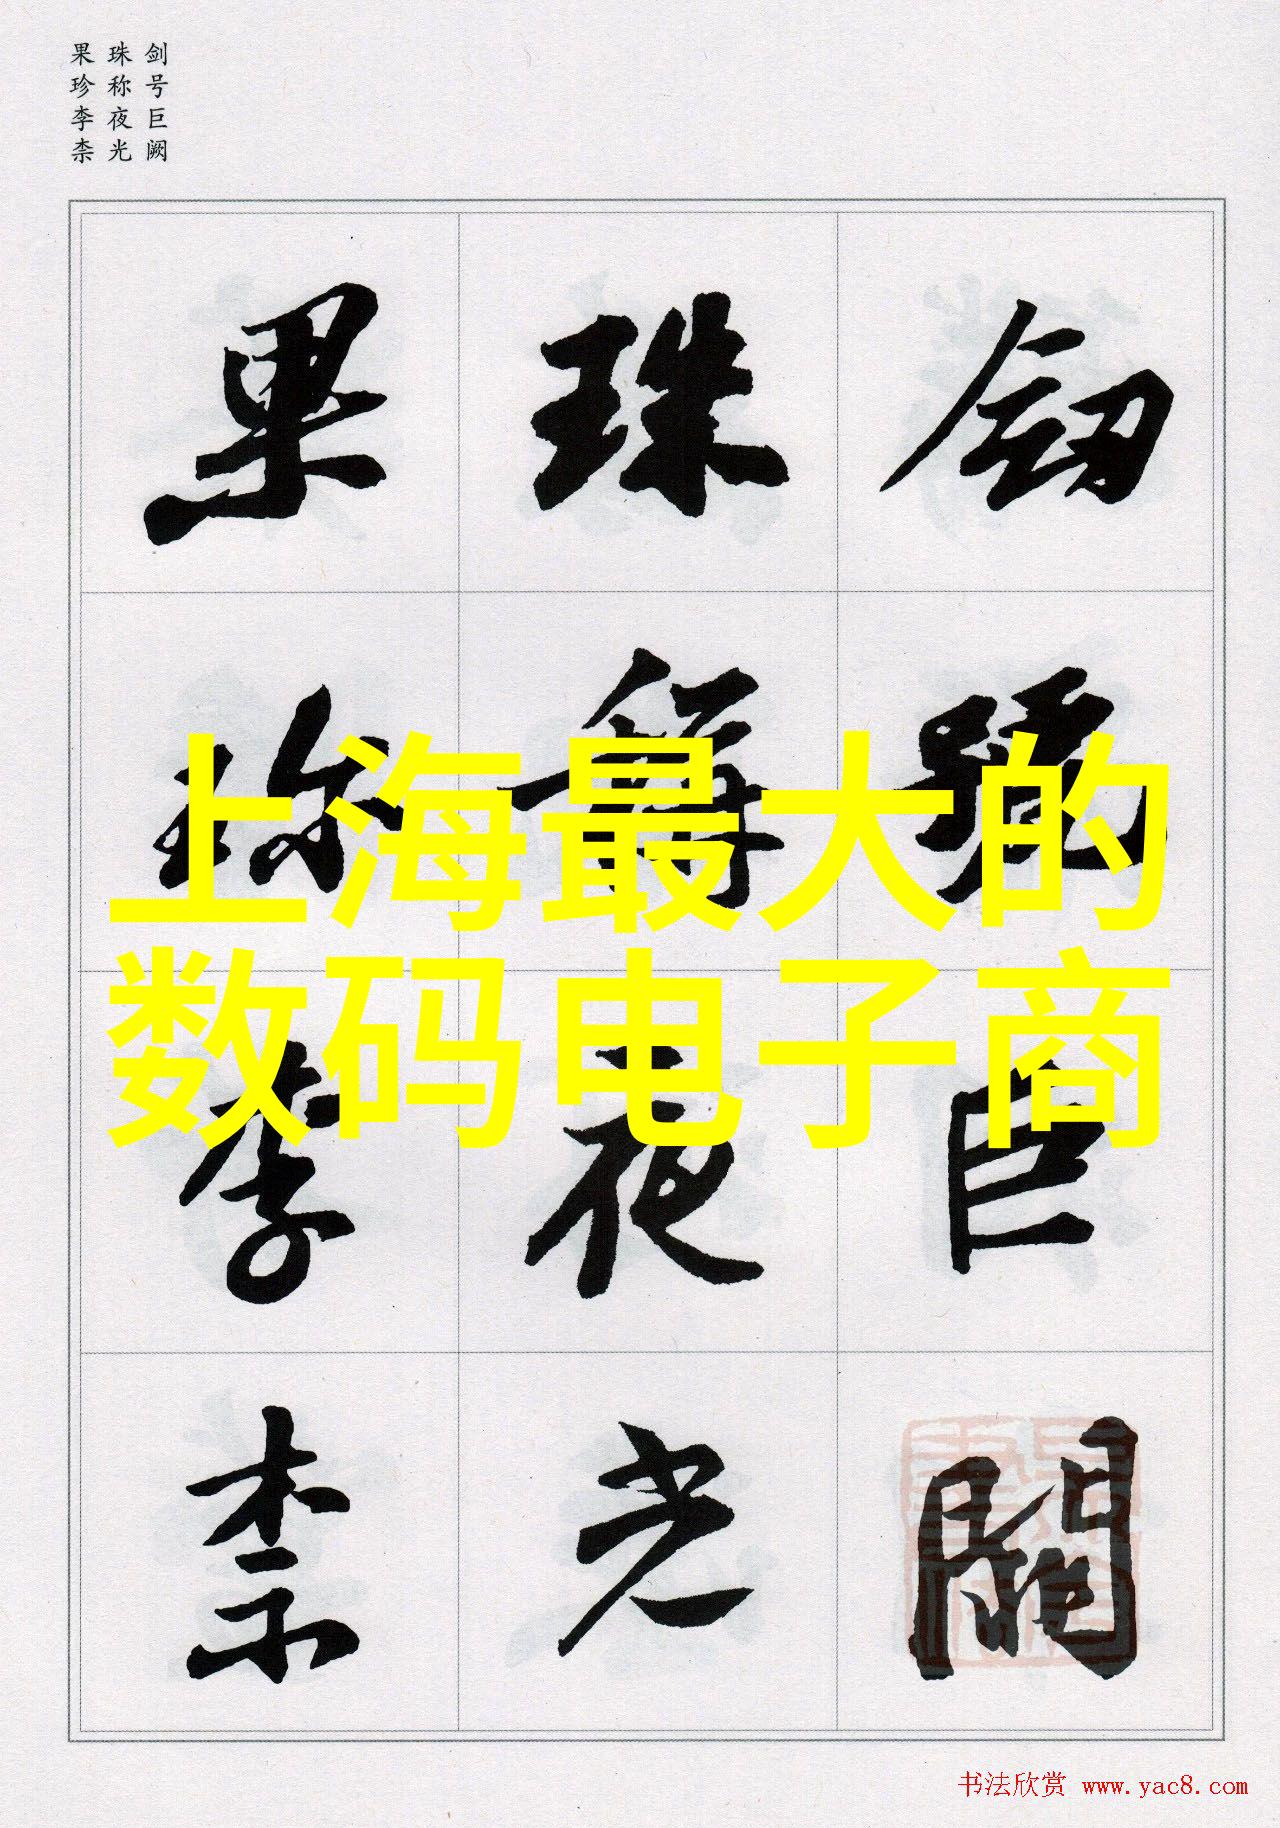 剑号巨阙
珠称夜光
果珍李柰
釰號巨闕
珠稱夜光
果珍李柰
上海最大的
数码电子商
书法欣赏 www.yac8.com